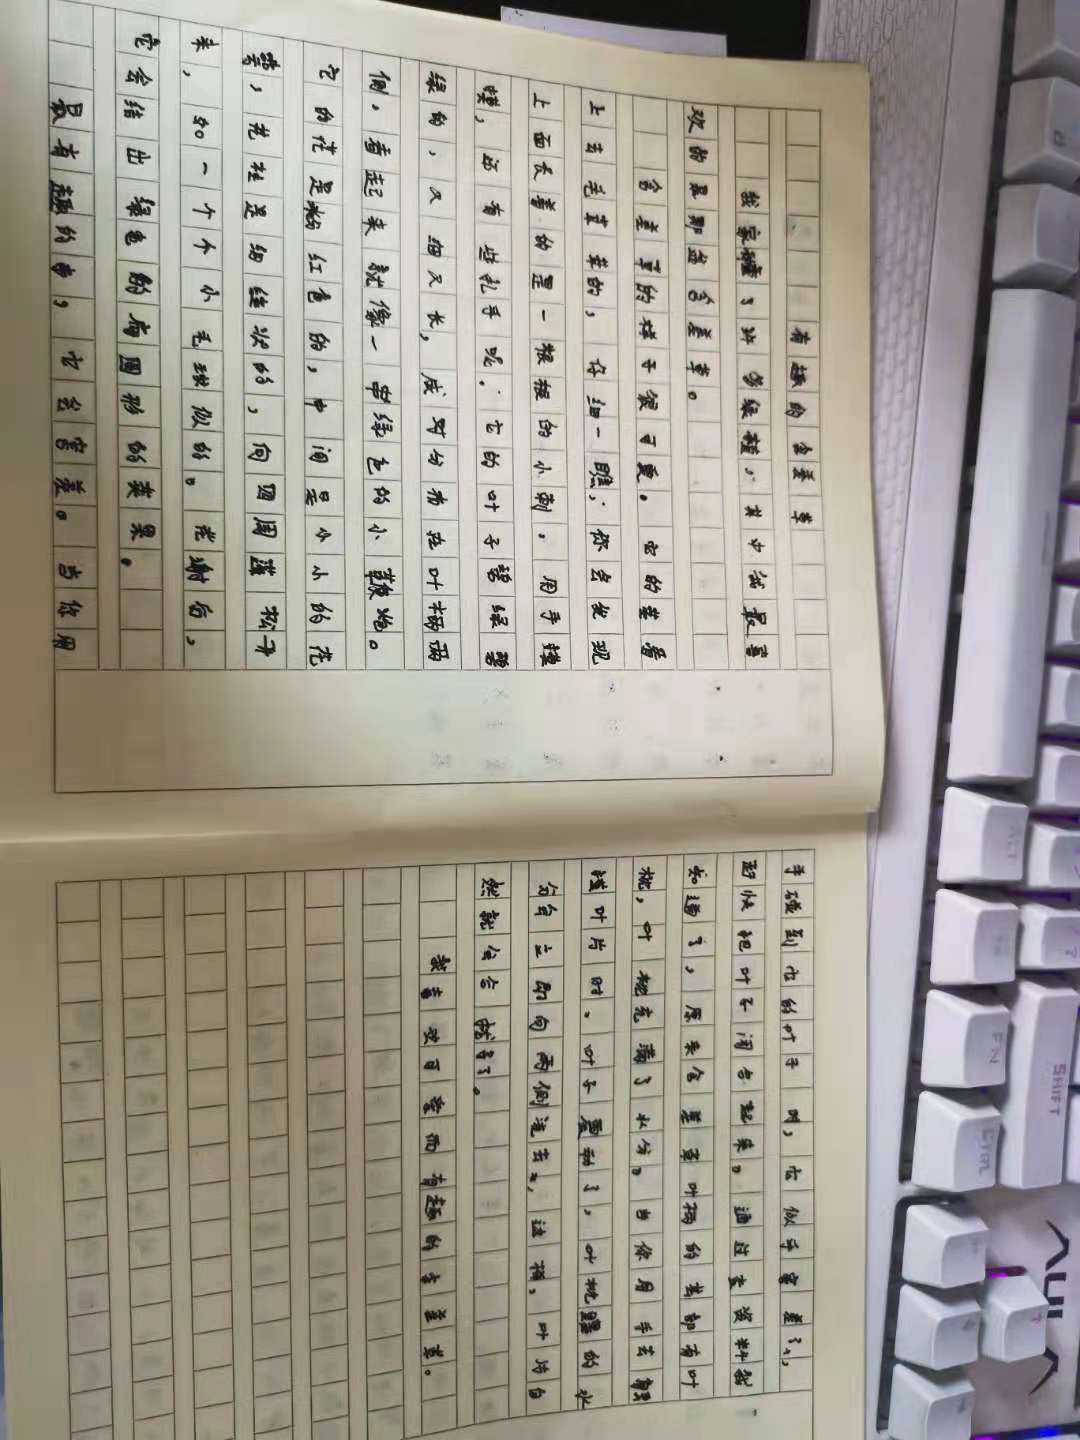 有趣的含羞草
我家种了许多绿植，其中我最喜
欢的是那盆含羞草。
含羞草的样子很可爱。它的茎看
上去毛茸茸的，仔细一瞧，你会发现
上面长着的是一根根的小刺，用手摸
摸，还有些扎手呢。它的叶子碧绿碧
绿的，又细又长，成对分布在叶柄两
侧，看起来就像一串绿色的小鞭炮。
它的花是粉红色的，中间是小小的花
蕊，花柱是细丝状的，向四周蓬松开
来，如一个个小毛球似的。花谢后，
它会结出绿色的扁圆形的荚果。
最有趣的事，它会害羞。当你用
手碰到它的叶子时，它似乎害羞了，
赶快把叶子闭合起来。通过查资料我
知道了，原来含羞草叶柄的基部有叶
枕，叶枕充满了水分。当你用手去触
摸叶片时，叶子震动了，叶枕里的水
分自立即向两侧流去，这样，叶片自
然就会合拢了。
我喜欢可爱而有趣的含羞草。
SHIFT
ALT
FN
CTRL
AULA